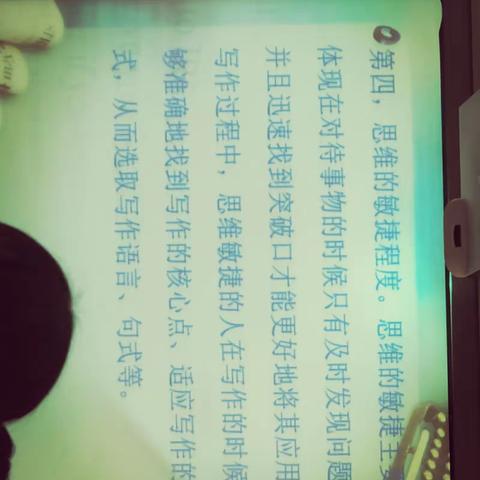 第四，思维的敏捷程度。思维的敏捷主要
体现在对待事物的时候只有及时发现问题
并且迅速找到突破口才能更好地将其应用
写作过程中，思维敏捷的人在写作的时候
够准确地找到写作的核心点、适应写作的
式，从而选取写作语言、句式等。